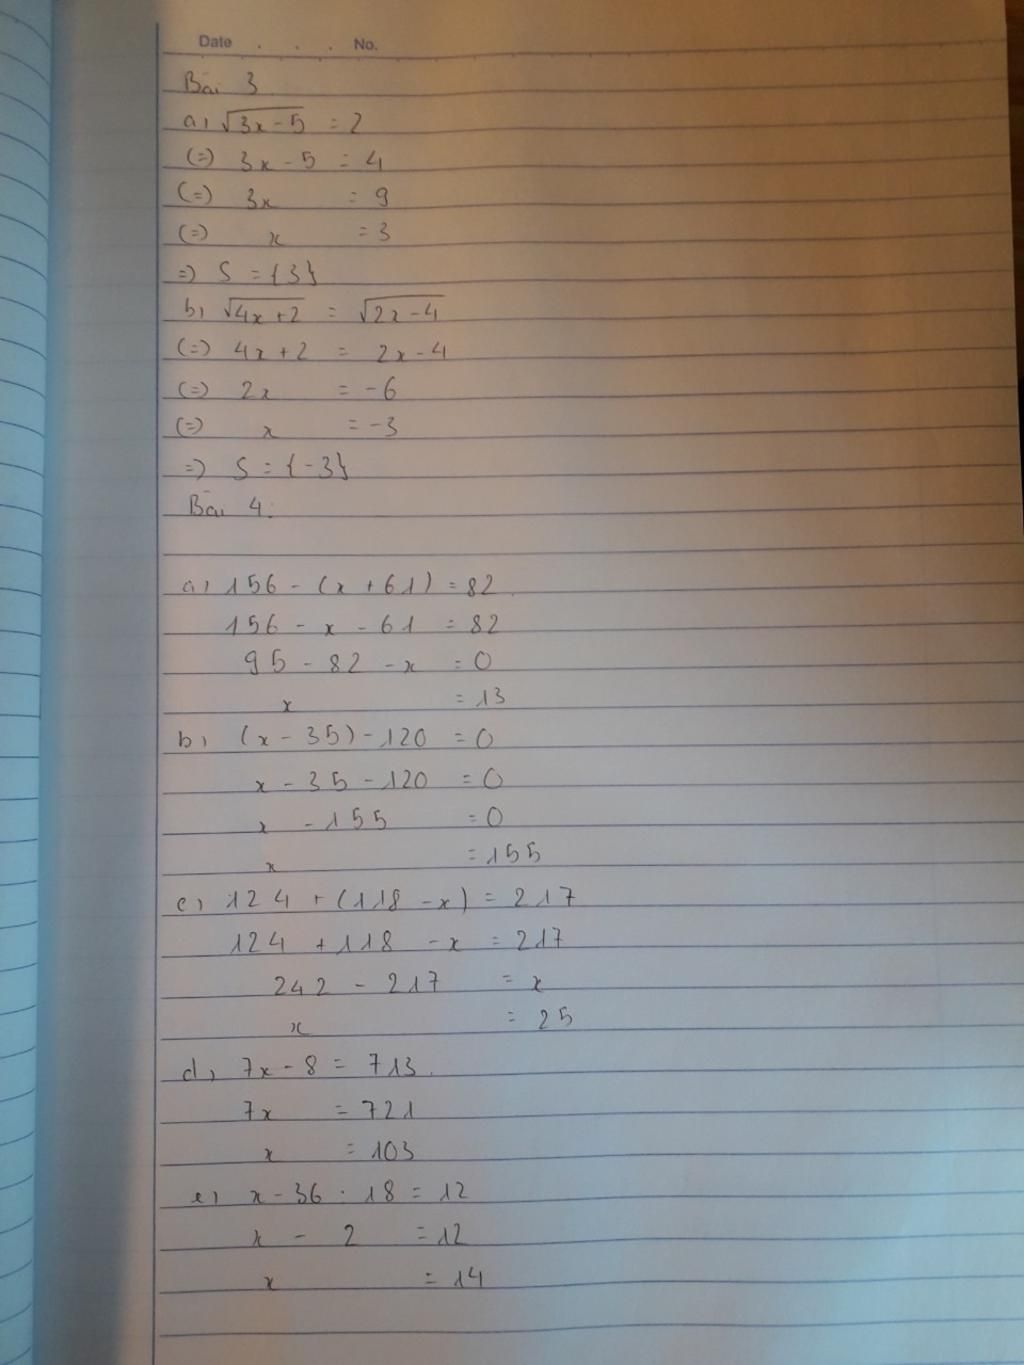 Date . . . No.
Bài 3
a, √3x-5 = 2
(=) 3x - 5 = 4
(=) 3x = 9
(=) x = 3
=) S = {3}
b, √4x+2 = √2x-4
(=) 4x+2 = 2x-4
(=) 2x = -6
(=) x = -3
=) S = {-3}
Bài 4:
a, 156 - (x + 61) = 82
156 - x - 61 = 82
95 - 82 - x = 0
x = 13
b, (x - 35) - 120 = 0
x - 35 - 120 = 0
x - 155 = 0
x = 155
c, 124 + (118 - x) = 217
124 + 118 - x = 217
242 - 217 = x
x = 25
d, 7x - 8 = 713
7x = 721
x = 103
e, x - 36 : 18 = 12
x - 2 = 12
x = 14